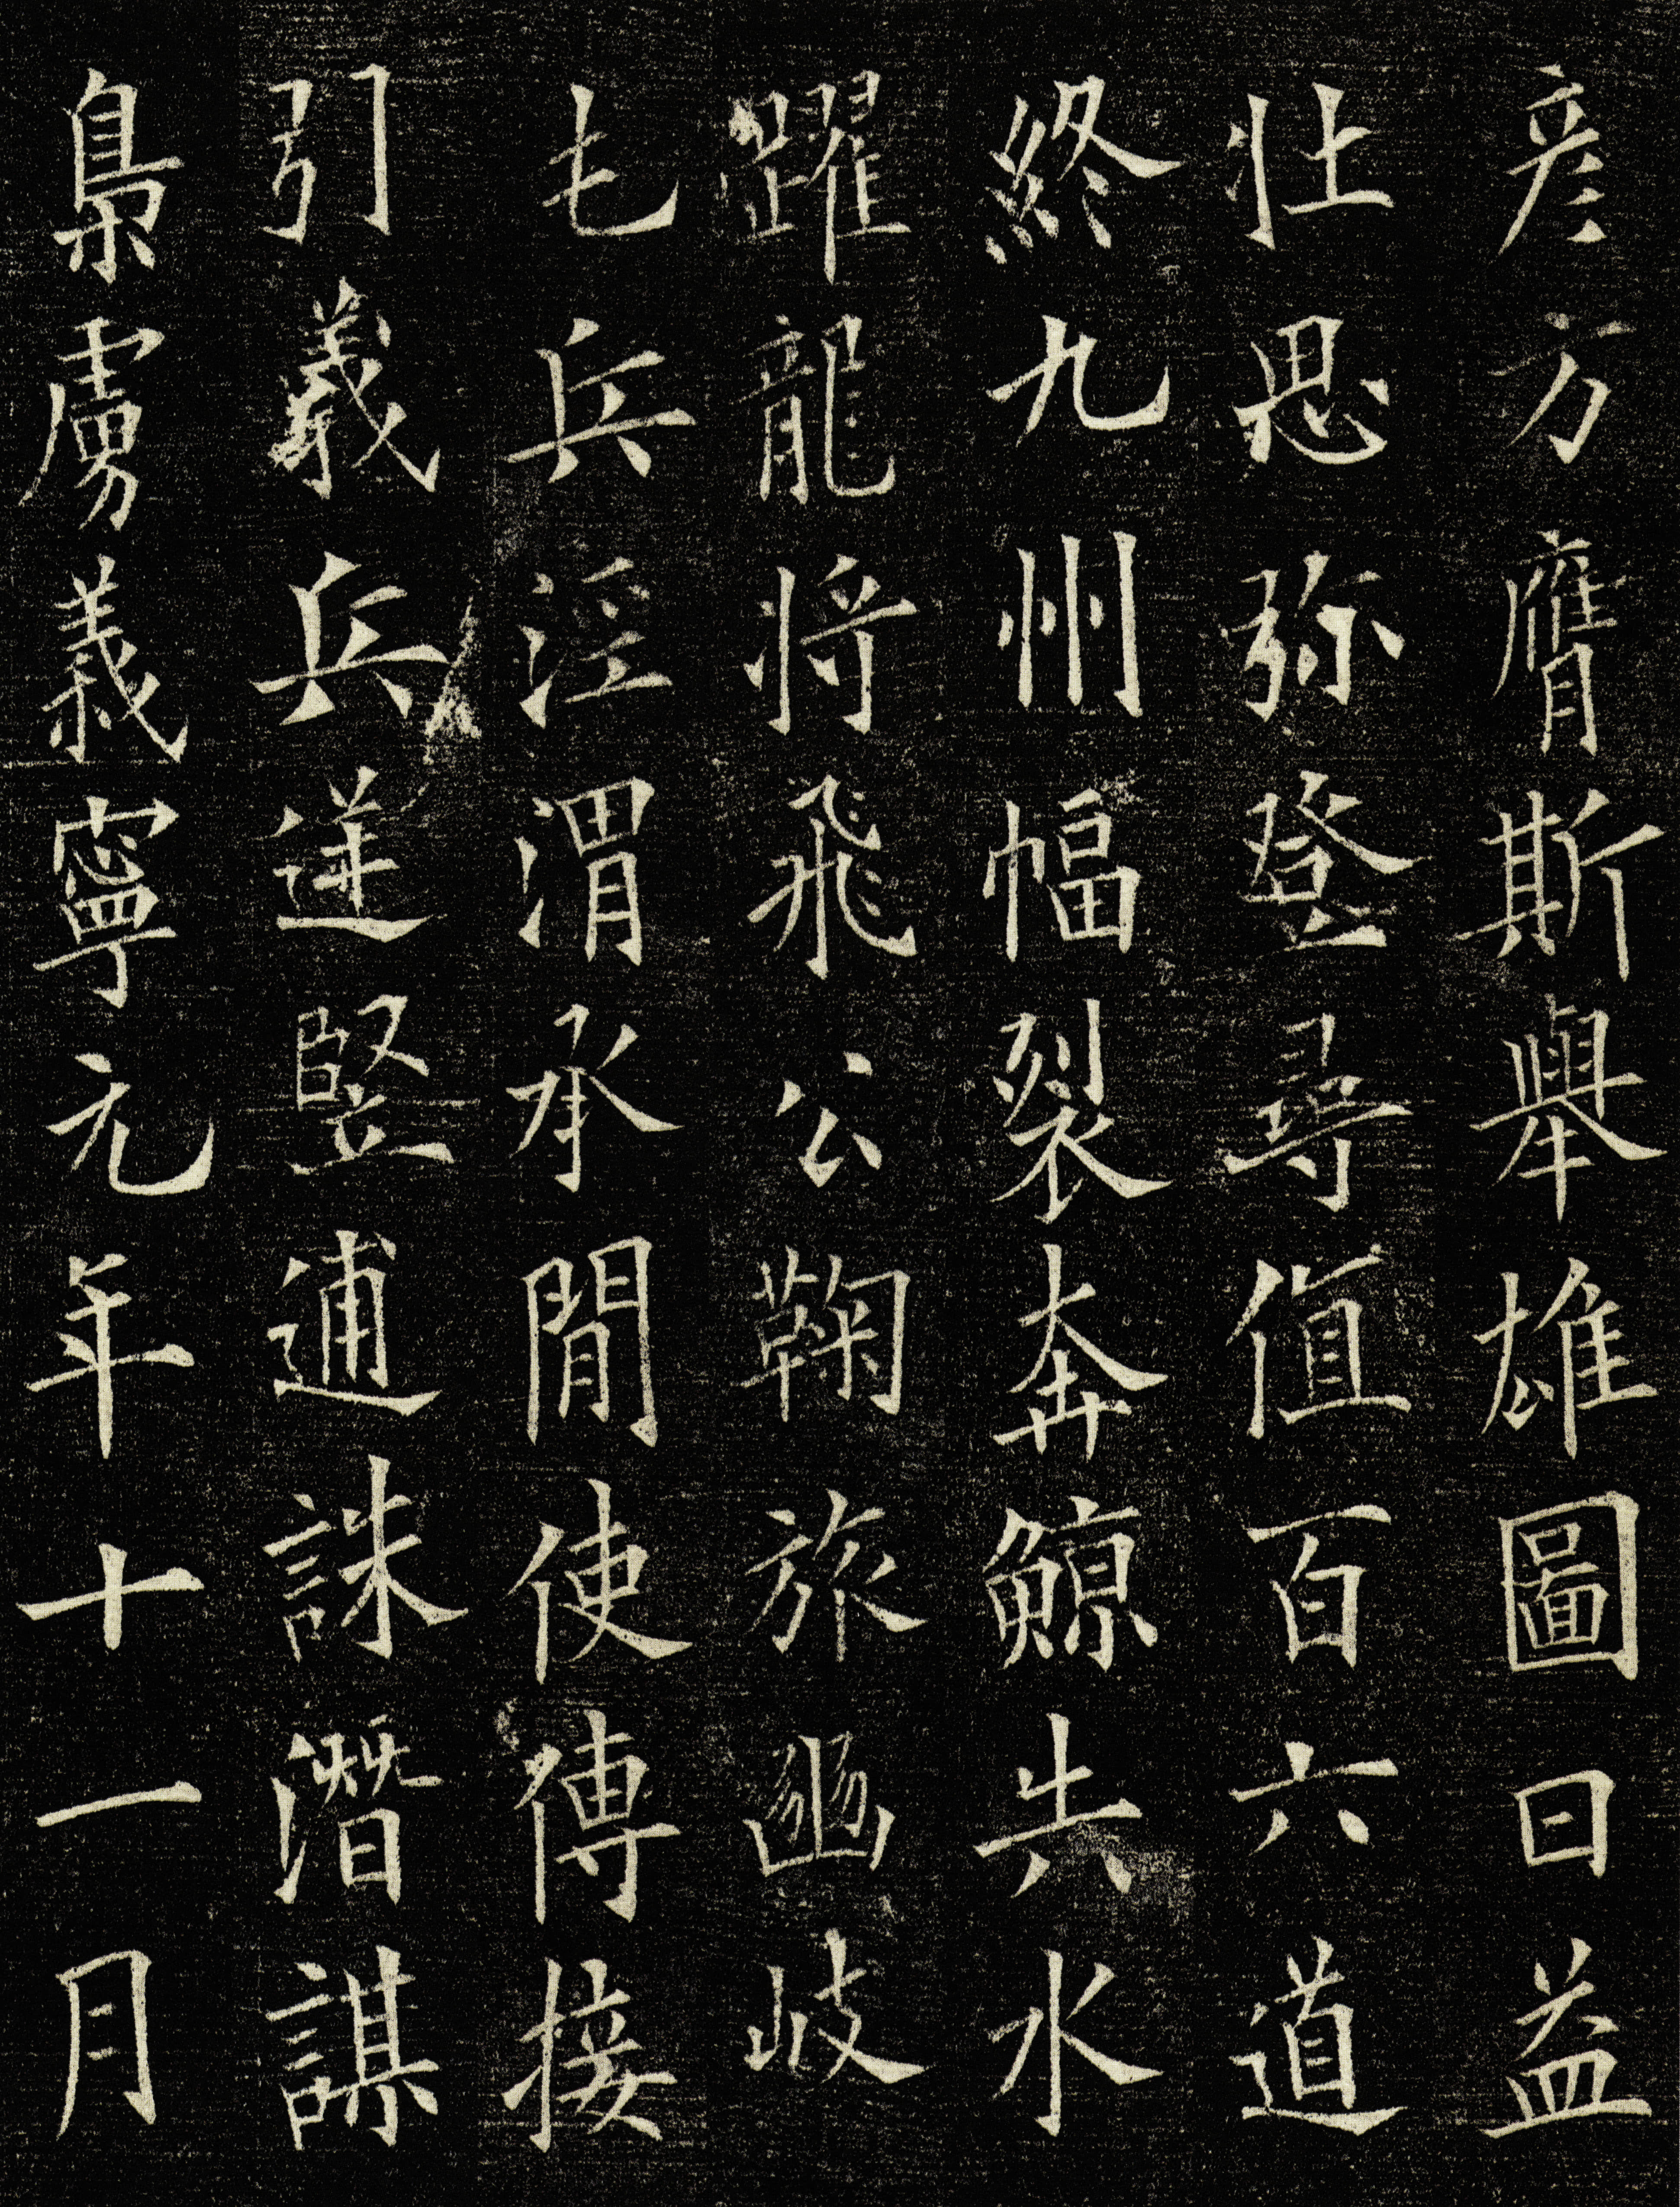 彦方膺斯舉雄圖日益
壯思弥登尋值百六道
終九州幅裂奔鯨失水
躍龍將飛公鞠旅豳岐
乇兵涇渭承閒使傅接
引義兵逆豎逋誅潛謀
梟虜義寧元年十一月